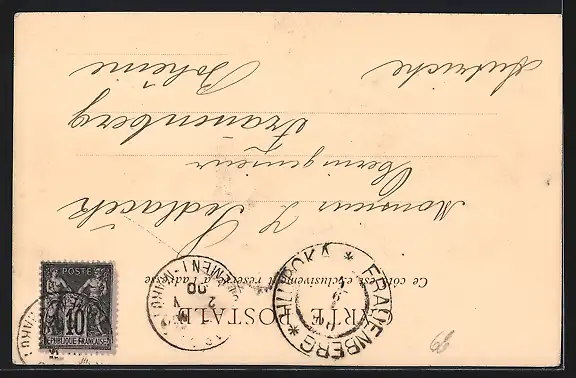 CARTE POSTALE
Ce côté est exclusivement réservé à l'adresse
Monsieur J. Sedláček
Oberingenieur
Frauenberg
Autriche Bohême
POSTE
10
REPUBLIQUE FRANÇAISE
FRAUENBERG * HLUBOKA *
99